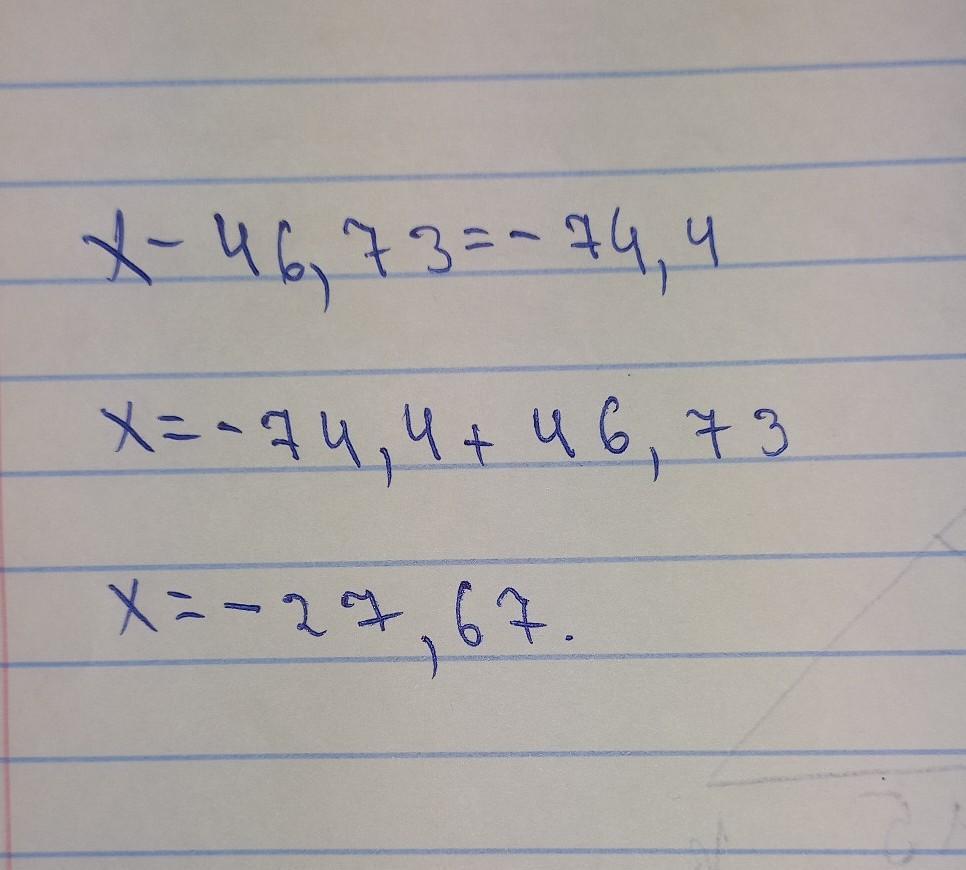 x - 46,73 = - 74,4
x = - 74,4 + 46,73
x = - 27,67.